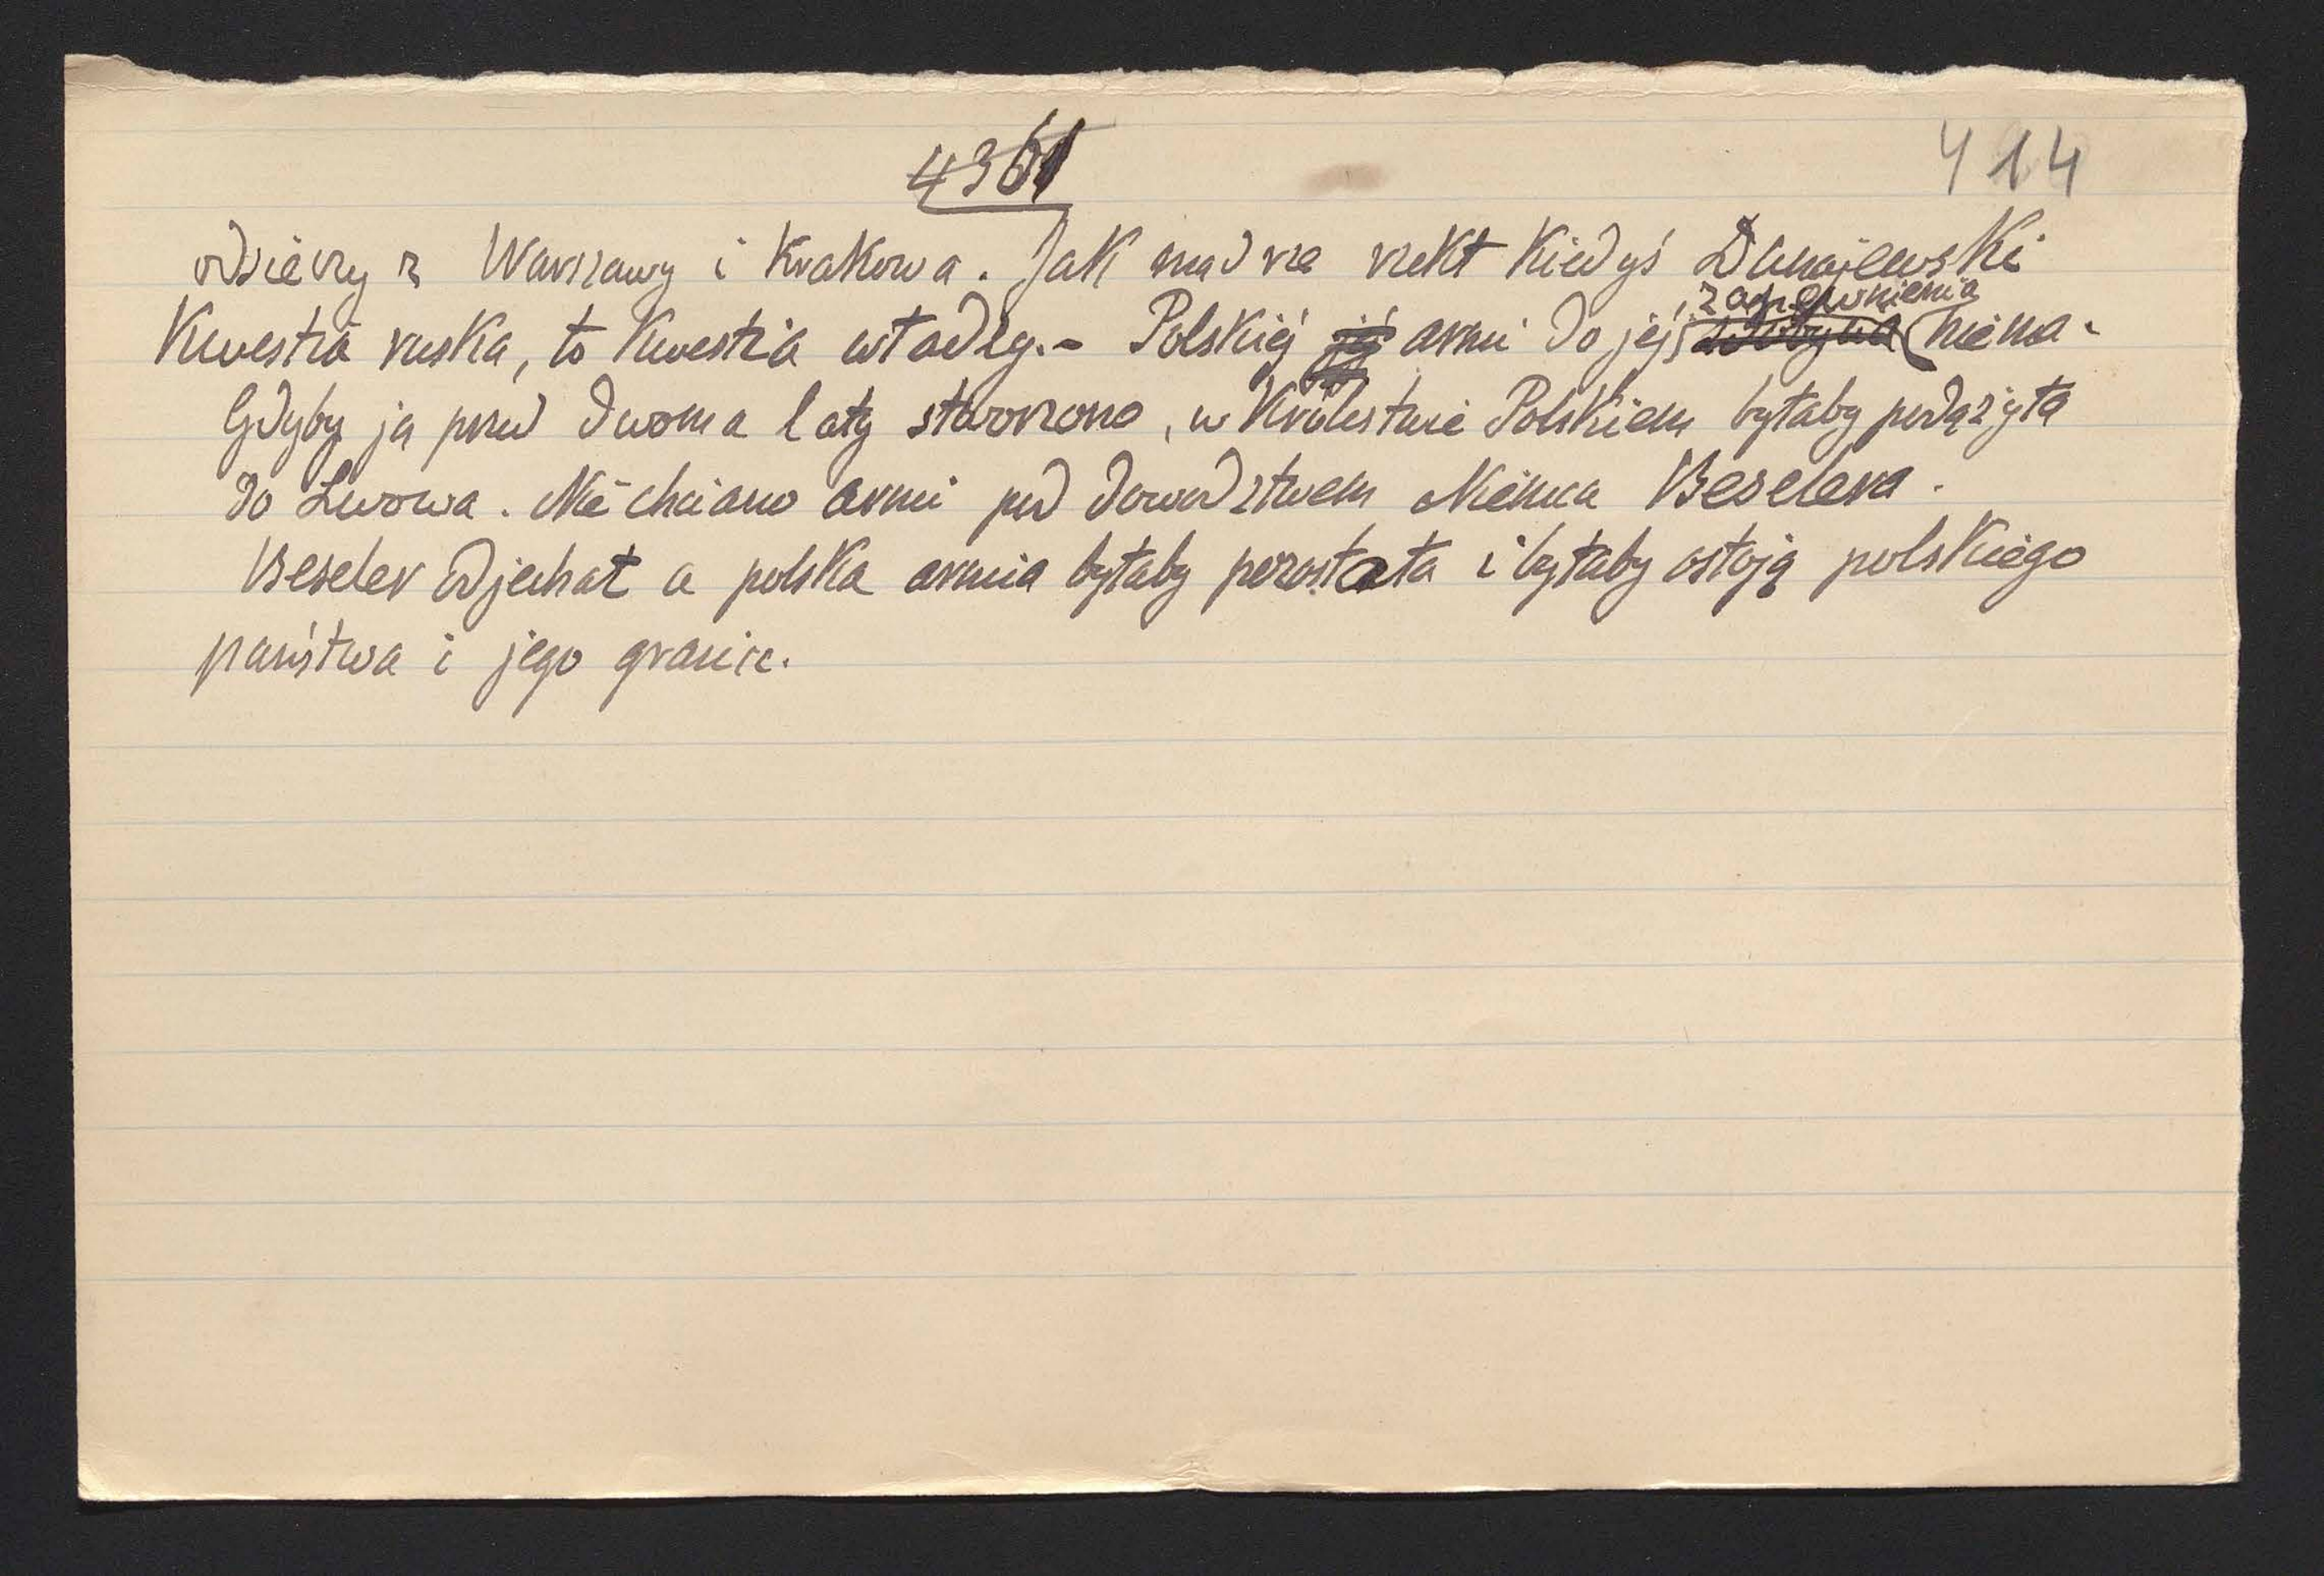 4361
414
odsieczy z Warszawy i Krakowa. Jak mądrze rzekł kiedyś Dunajewski
zapewnienia
Kwestia ruska, to kwestia władzy.- Polskiéj jéj armii do jéj zdobycia niema.
Gdyby ją przed dwoma laty stworzono, w Królestwie Polskiem byłaby podążyła
do Lwowa. Nie chciano armii pod dowództwem Niemca Beselera.
Beseler odjechał a polska armia byłaby pozostała i byłaby ostoją polskiego
państwa i jego granic.